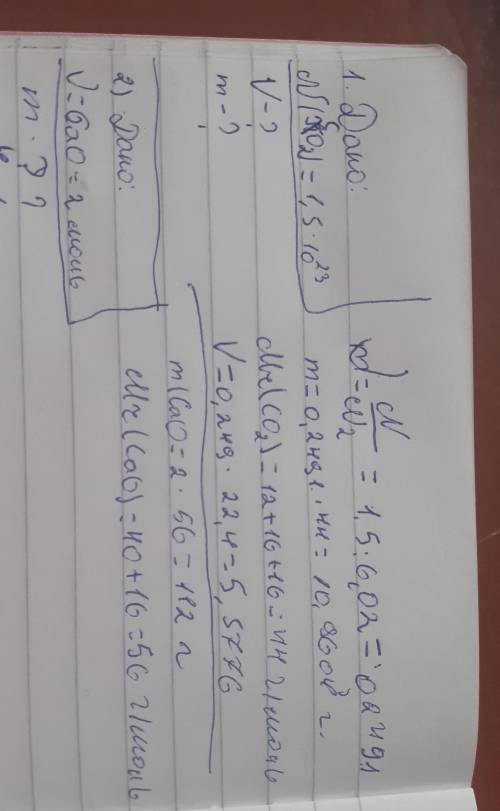 1. Дано:
N(CO2) = 1,5 · 10^23
V - ?
m - ?
= N / N2 = 1,5 : 6,02 = 0,2491
m = 0,2491 · 44 = 10,9604 г.
Mr(CO2) = 12 + 16 + 16 = 44 г/моль
V = 0,249 · 22,4 = 5,5776
2) Дано:
V = CaO = 2 моль
m - ?
m(CaO = 2 · 56 = 112 г
Mr(CaO) = 40 + 16 = 56 г/моль